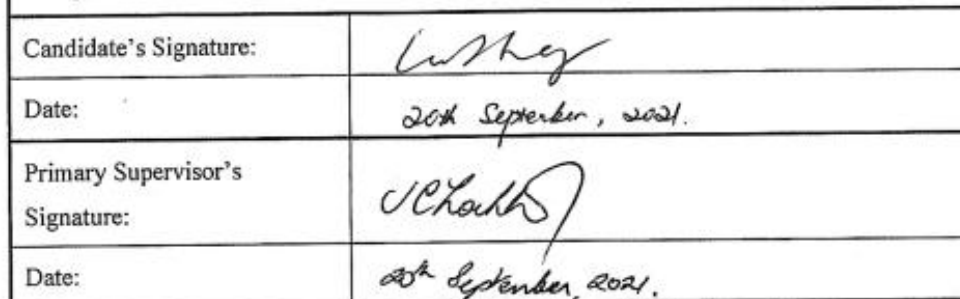 Candidate's Signature:
Date: 20th September, 2021.
Primary Supervisor's
Signature:
Date: 20th September, 2021.